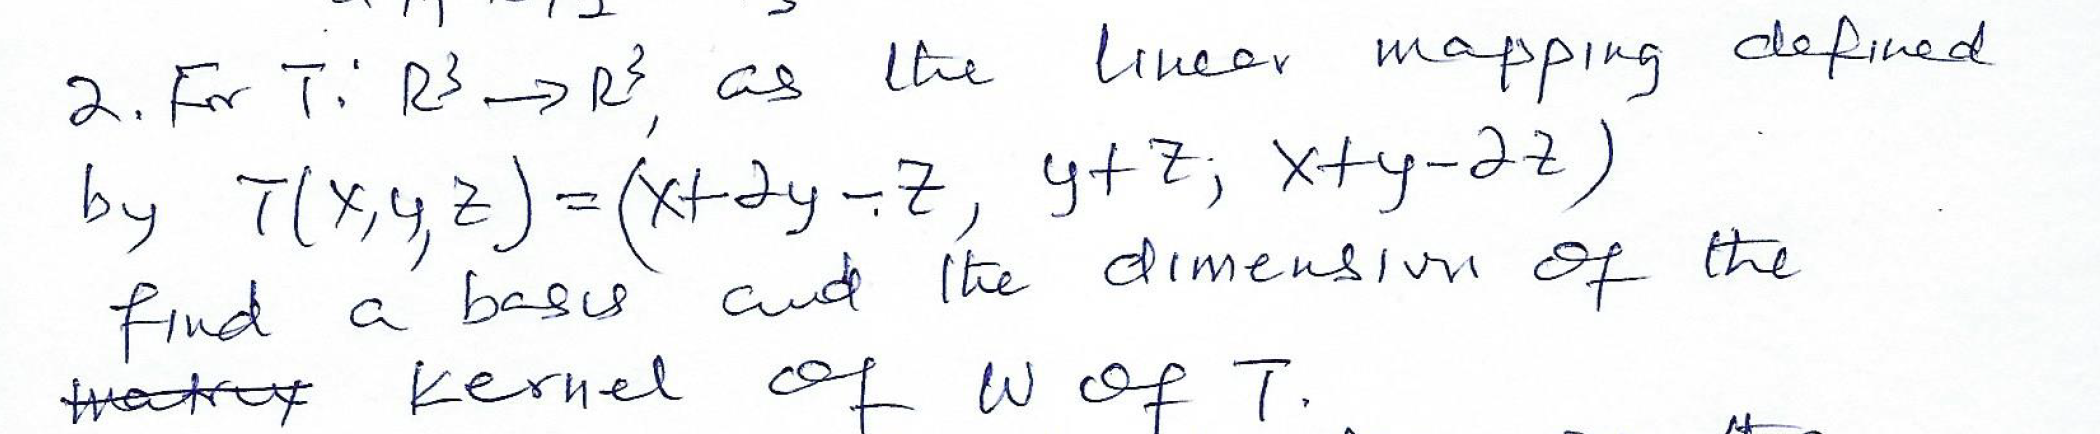 2. For T: R³ → R³, as the linear mapping defined
by T(x,y,z) = (x+2y-z, y+z, x+y-2z)
find a basis and the dimension of the
kernel of W of T.